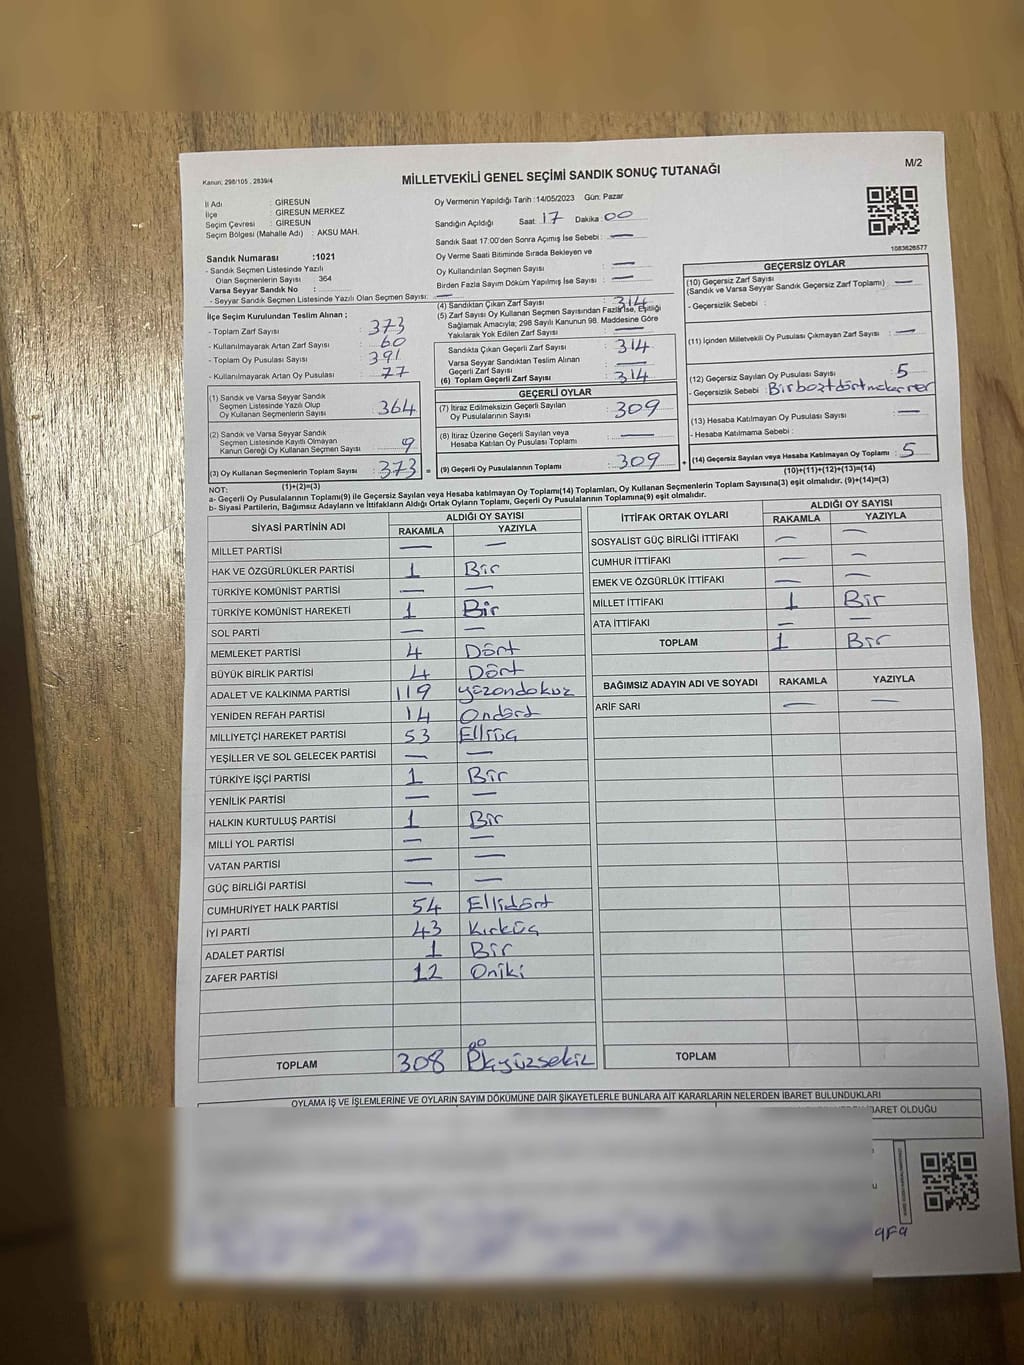 Kanun: 298/105 , 2839/4
MİLLETVEKİLİ GENEL SEÇİMİ SANDIK SONUÇ TUTANAĞI
M/2
İl Adı : GİRESUN
İlçe : GİRESUN MERKEZ
Seçim Çevresi : GİRESUN
Seçim Bölgesi (Mahalle Adı) : AKSU MAH.
Sandık Numarası :1021
- Sandık Seçmen Listesinde Yazılı
Olan Seçmenlerin Sayısı : 364
Varsa Seyyar Sandık No :
- Seyyar Sandık Seçmen Listesinde Yazılı Olan Seçmen Sayısı: —
İlçe Seçim Kurulundan Teslim Alınan ;
- Toplam Zarf Sayısı : 373
- Kullanılmayarak Artan Zarf Sayısı : 60
- Toplam Oy Pusulası Sayısı : 391
- Kullanılmayarak Artan Oy Pusulası : 77
(1) Sandık ve Varsa Seyyar Sandık
Seçmen Listesinde Yazılı Olup
Oy Kullanan Seçmenlerin Sayısı : 364
(2) Sandık ve Varsa Seyyar Sandık
Seçmen Listesinde Kayıtlı Olmayan
Kanun Gereği Oy Kullanan Seçmen Sayısı : 9
(3) Oy Kullanan Seçmenlerin Toplam Sayısı : 373 =
(1)+(2)=(3)
Oy Vermenin Yapıldığı Tarih :14/05/2023 Gün: Pazar
Sandığın Açıldığı Saat: 17 Dakika: 00
Sandık Saat 17:00'den Sonra Açımış İse Sebebi : —
Oy Verme Saati Bitiminde Sırada Bekleyen ve
Oy Kullandırılan Seçmen Sayısı : —
Birden Fazla Sayım Döküm Yapılmış İse Sayısı : —
(4) Sandıktan Çıkan Zarf Sayısı : 314
(5) Zarf Sayısı Oy Kullanan Seçmen Sayısından Fazla İse, Eşitliği
Sağlamak Amacıyla; 298 Sayılı Kanunun 98. Maddesine Göre
Yakılarak Yok Edilen Zarf Sayısı : —
Sandıkta Çıkan Geçerli Zarf Sayısı : 314
Varsa Seyyar Sandıktan Teslim Alınan
Geçerli Zarf Sayısı : —
(6) Toplam Geçerli Zarf Sayısı : 314
GEÇERLİ OYLAR
(7) İtiraz Edilmeksizin Geçerli Sayılan
Oy Pusulalarının Sayısı : 309
(8) İtiraz Üzerine Geçerli Sayılan veya
Hesaba Katılan Oy Pusulası Toplamı : —
(9) Geçerli Oy Pusulalarının Toplamı : 309 +
1083826577
GEÇERSİZ OYLAR
(10) Geçersiz Zarf Sayısı
(Sandık ve Varsa Seyyar Sandık Geçersiz Zarf Toplamı) : —
- Geçersizlik Sebebi :
(11) İçinden Milletvekili Oy Pusulası Çıkmayan Zarf Sayısı : —
(12) Geçersiz Sayılan Oy Pusulası Sayısı : 5
- Geçersizlik Sebebi :
(13) Hesaba Katılmayan Oy Pusulası Sayısı : —
- Hesaba Katılmama Sebebi :
(14) Geçersiz Sayılan veya Hesaba Katılmayan Oy Toplamı : 5
(10)+(11)+(12)+(13)=(14)
NOT:
a- Geçerli Oy Pusulalarının Toplamı(9) ile Geçersiz Sayılan veya Hesaba katılmayan Oy Toplamı(14) Toplamları, Oy Kullanan Seçmenlerin Toplam Sayısına(3) eşit olmalıdır. (9)+(14)=(3)
b- Siyasi Partilerin, Bağımsız Adayların ve İttifakların Aldığı Ortak Oyların Toplamı, Geçerli Oy Pusulalarının Toplamına(9) eşit olmalıdır.
SİYASİ PARTİNİN ADI ALDIĞI OY SAYISI
RAKAMLA YAZIYLA
MİLLET PARTİSİ — —
HAK VE ÖZGÜRLÜKLER PARTİSİ 1 Bir
TÜRKİYE KOMÜNİST PARTİSİ — —
TÜRKİYE KOMÜNİST HAREKETİ 1 Bir
SOL PARTİ — —
MEMLEKET PARTİSİ 4 Dört
BÜYÜK BİRLİK PARTİSİ 4 Dört
ADALET VE KALKINMA PARTİSİ 119 yüzondokuz
YENİDEN REFAH PARTİSİ 14 Ondört
MİLLİYETÇİ HAREKET PARTİSİ 53 Elliüç
YEŞİLLER VE SOL GELECEK PARTİSİ — —
TÜRKİYE İŞÇİ PARTİSİ 1 Bir
YENİLİK PARTİSİ — —
HALKIN KURTULUŞ PARTİSİ 1 Bir
MİLLİ YOL PARTİSİ — —
VATAN PARTİSİ — —
GÜÇ BİRLİĞİ PARTİSİ — —
CUMHURİYET HALK PARTİSİ 54 Ellidört
İYİ PARTİ 43 Kırküç
ADALET PARTİSİ 1 Bir
ZAFER PARTİSİ 12 Oniki
TOPLAM 308
İTTİFAK ORTAK OYLARI ALDIĞI OY SAYISI
RAKAMLA YAZIYLA
SOSYALİST GÜÇ BİRLİĞİ İTTİFAKI — —
CUMHUR İTTİFAKI — —
EMEK VE ÖZGÜRLÜK İTTİFAKI — —
MİLLET İTTİFAKI 1 Bir
ATA İTTİFAKI — —
TOPLAM 1 Bir
BAĞIMSIZ ADAYIN ADI VE SOYADI RAKAMLA YAZIYLA
ARİF SARI — —
TOPLAM
OYLAMA İŞ VE İŞLEMLERİNE VE OYLARIN SAYIM DÖKÜMÜNE DAİR ŞİKAYETLERLE BUNLARA AİT KARARLARIN NELERDEN İBARET BULUNDUKLARI
BARET OLDUĞU
9F9